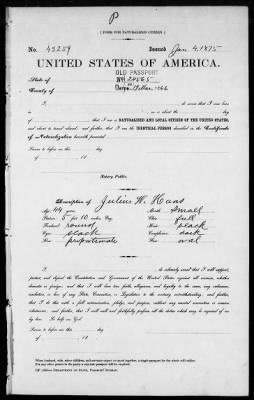 P
[FORM FOR NATURALIZED CITIZEN.]
No. 43259 Issued Jan 4. 1875
UNITED STATES OF AMERICA.
OLD PASSPORT
State of No
County of 1866
I, do swear that I was born
in , on or about the day
of ; that I am a NATURALIZED AND LOYAL CITIZEN OF THE UNITED STATES,
and about to travel abroad; and further, that I am the IDENTICAL PERSON described in the Certificate
of Naturalization herewith presented.
Sworn to before me this day
of , 18
Notary Public.
Description of Julius W. Haas
Age: 44 years Mouth: small
Stature: 5 feet 10 inches, Eng. Chin: full
Forehead: round Hair: black
Eyes: black Complexion: dark
Nose: proportionate Face: oval
I, , do solemnly swear that I will support,
protect, and defend the Constitution and Government of the United States against all enemies, whether
domestic or foreign; and that I will bear true faith, allegiance, and loyalty to the same, any ordinance,
resolution, or law of any State, Convention, or Legislature to the contrary notwithstanding; and further,
that I do this with a full determination, pledge, and purpose, without any mental reservation or evasion
whatsoever; and further, that I will well and faithfully perform all the duties which may be required of me
by law. So help me God.
Sworn to before me this day
of , 18
When husband, wife, minor children, and servants expect to travel together, a single passport for the whole will suffice.
For any other person in the party a separate passport will be required.